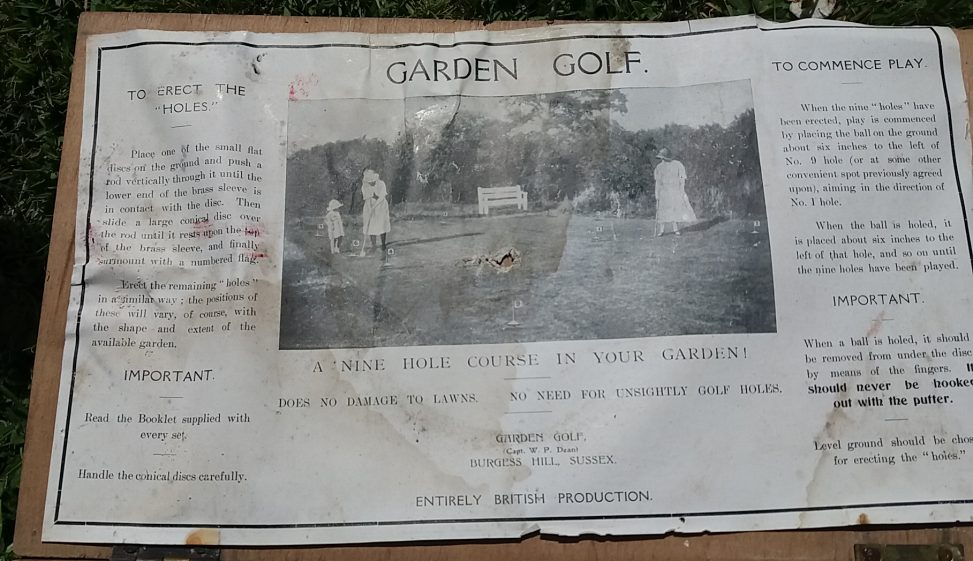 GARDEN GOLF.
TO ERECT THE
"HOLES."
Place one of the small flat
discs on the ground and push a
rod vertically through it until the
lower end of the brass sleeve is
in contact with the disc. Then
slide a large conical disc over
the rod until it rests upon the top
of the brass sleeve, and finally
surmount with a numbered flag.
Erect the remaining "holes"
in a similar way; the positions of
these will vary, of course, with
the shape and extent of the
available garden.
IMPORTANT.
Read the Booklet supplied with
every set.
Handle the conical discs carefully.
A NINE HOLE COURSE IN YOUR GARDEN!
DOES NO DAMAGE TO LAWNS. NO NEED FOR UNSIGHTLY GOLF HOLES.
GARDEN GOLF,
(Capt. W. P. Dean)
BURGESS HILL, SUSSEX.
ENTIRELY BRITISH PRODUCTION.
TO COMMENCE PLAY.
When the nine "holes" have
been erected, play is commenced
by placing the ball on the ground
about six inches to the left of
No. 9 hole (or at some other
convenient spot previously agreed
upon), aiming in the direction of
No. 1 hole.
When the ball is holed, it
is placed about six inches to the
left of that hole, and so on until
the nine holes have been played.
IMPORTANT.
When a ball is holed, it should
be removed from under the disc
by means of the fingers. It
should never be hooked
out with the putter.
Level ground should be chos
for erecting the "holes."